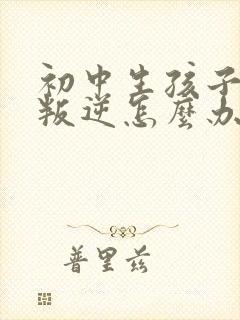 初中生孩子
叛逆怎麼办
普里兹